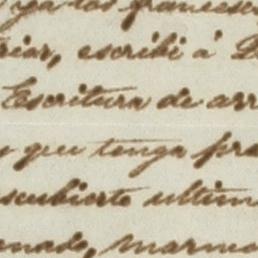 ya los frances
riar, escribi á D
Escritura de arr
y que tenga pre
scubierto ultim
onado, marmo